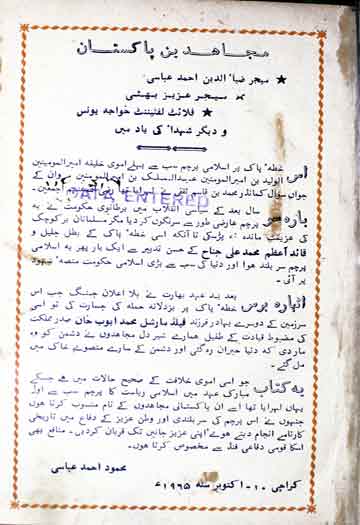 مجاهدین پاکستان
★ میجر ضیا الدین احمد عباسی
★ میجر عزیز بھٹی
★ فلائٹ لفٹیننٹ خواجہ یونس
و دیگر شہدا کی یاد میں
اس خطہ پاک پر اسلامی پرچم سب سے پہلے اموی خلیفہ امیرالمومنین
الولید بن امیرالمومنین عبدالملک بن امیرالمومنین وان کے
جواں سال کمانڈر محمد بن قاسم ثقفی نے لہرایا تھا
DATA ENTERED
بارہ سو سال بعد کے سیاسی انقلاب میں برطانوی حکومت نے یہ
پرچم عارضی طور سے سرنگوں کردیا مگر مسلمانان بر کوچک
کی عزیمت ماند نہ پڑسکی تاآنکہ اسی خطہ پاک کے بطل جلیل و
قائد اعظم محمد علی جناح کے حسن تدبیر سے ایک بار پھر یہ اسلامی
پرچم سر بلند ہوا اور دنیا کی سب سے بڑی اسلامی حکومت منصہ شہود
پر آئی۔
اٹھارہ برس بعد بد عہد بھارت نے بلا اعلان جنگ جب اس
خطہ پاک پر بزدلانہ حملہ کی جسارت کی تو اسی
سرزمین کے دوسرے بہادر فرزند فیلڈ مارشل محمد ایوب خان صدر مملکت
کی مضبوط قیادت کے طفیل ہمارے شیر دل مجاہدوں نے دشمن کو وہ
مار دی کہ دنیا حیران رہ گئی اور دشمن کے سارے منصوبے خاک میں
مل گئے۔
یہ کتاب جو اسی اموی خلافت کے صحیح حالات میں ہے جسکے
مبارک عہد میں اسلامی ریاست کا پرچم سب سے اول
یہاں لہرایا تھا اے ان پاکستانی مجاہدوں کے نام منسوب کرتا ہوں
جنہوں نے اس پرچم کی سربلندی اور وطن عزیز کے دفاع میں تاریخی
کارنامے انجام دیتے ہوئے اپنی عزیز جانیں تک قربان کردیں۔ منافع بھی
اسکا قومی دفاعی فنڈ سے مخصوص کرتا ہوں۔
محمود احمد عباسی
کراچی ۱۰۔ اکتوبر سنہ ۱۹۶۵ء